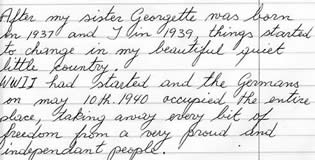 After my sister Georgette was born
in 1937 and I in 1939, things started
to change in my beautiful quiet
little country.
WWII had started and the Germans
on may 10th. 1940 occupied the entire
place, taking away every bit of
freedom from a very proud and
independant people.